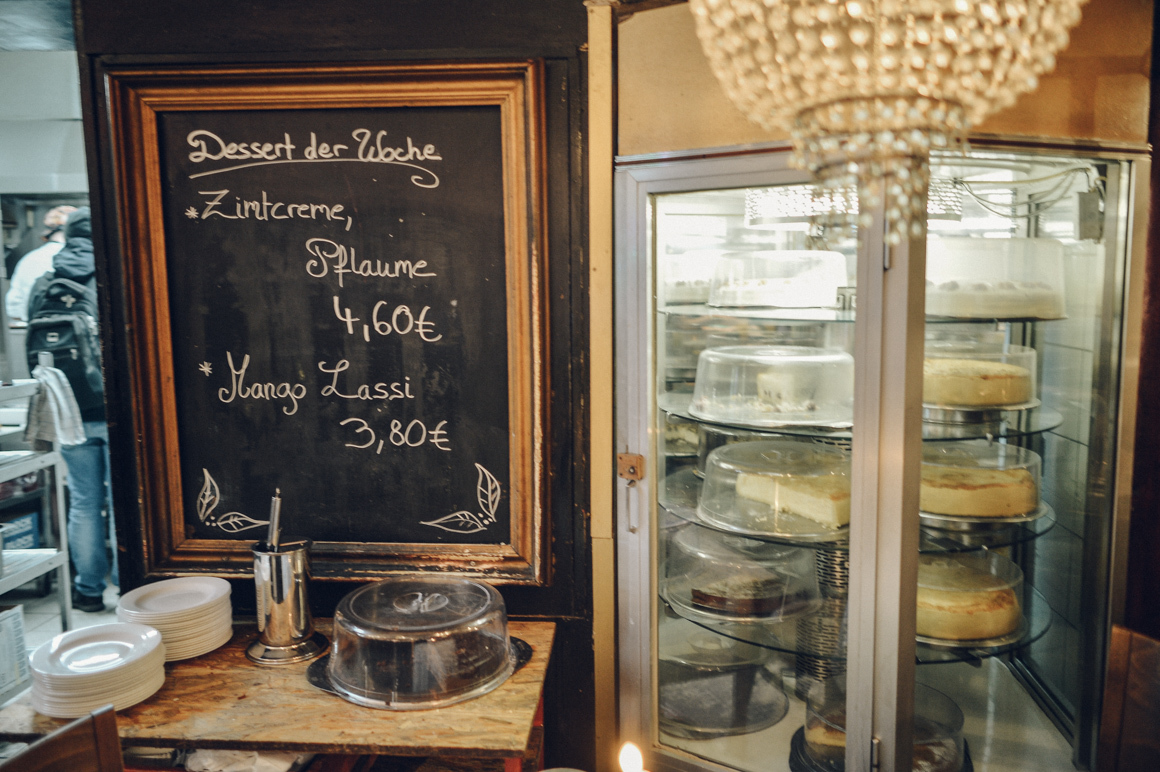 Dessert der Woche
*Zimtcreme,
Pflaume
4,60€
*Mango Lassi
3,80€